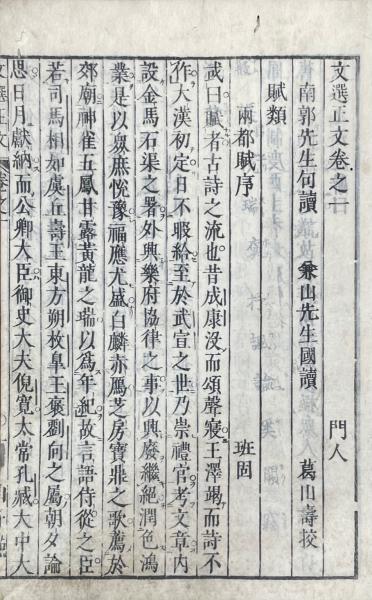 文選正文卷之一
南郭先生句讀 兼山先生國讀 門人 葛山壽校
賦類
兩都賦序 班固
或曰賦者古詩之流也昔成康沒而頌聲寢王澤竭而詩不
作大漢初定日不暇給至於武宣之世乃崇禮官考文章內
設金馬石渠之署外興樂府協律之事以興廢繼絕潤色鴻
業是以眾庶悅豫福應尤盛白麟赤鴈芝房寶鼎之歌薦於
郊廟神雀五鳳甘露黃龍之瑞以爲年紀故言語侍從之臣
若司馬相如虞丘壽王東方朔枚皐王褒劉向之屬朝夕論
思日月獻納而公卿大臣御史大夫倪寬太常孔臧大中大
文選正文 卷之一